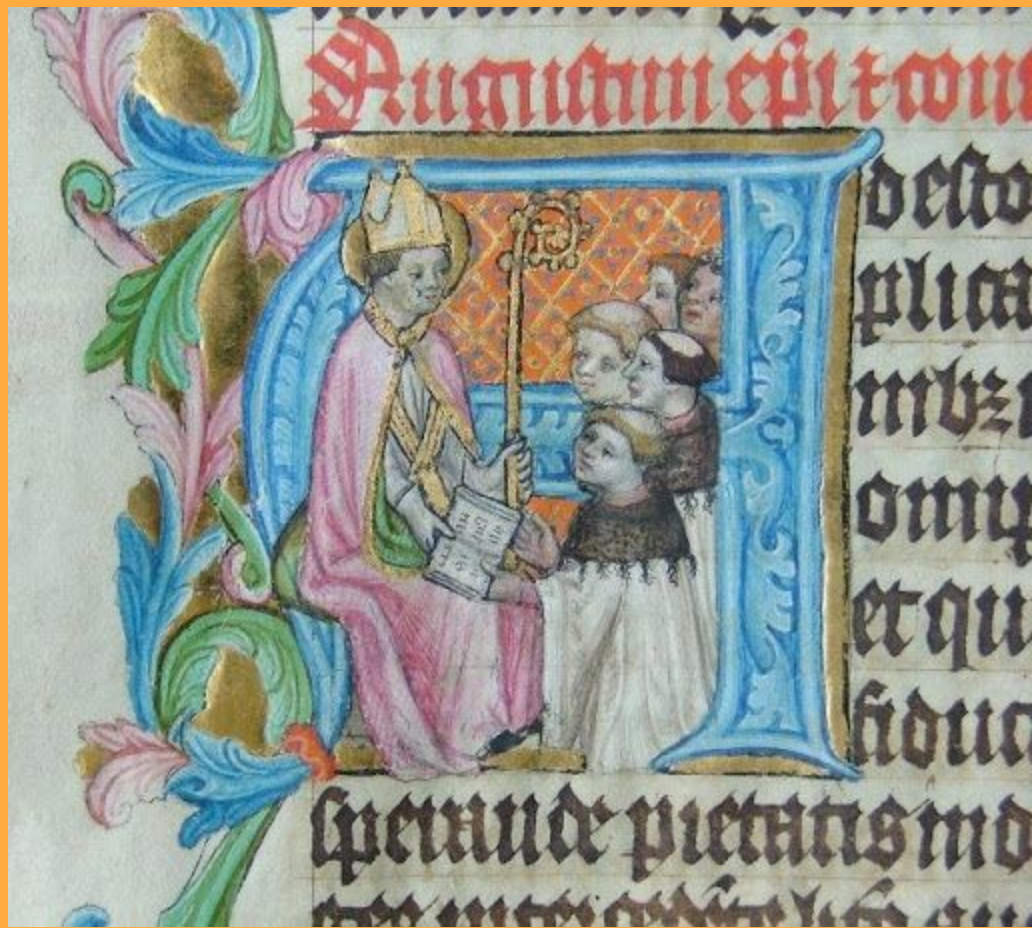 Augustini ep̄i ⁊ conf
A desto
plica
nibȝ n
omip
et qu
fiduc
sperande pietatis ind